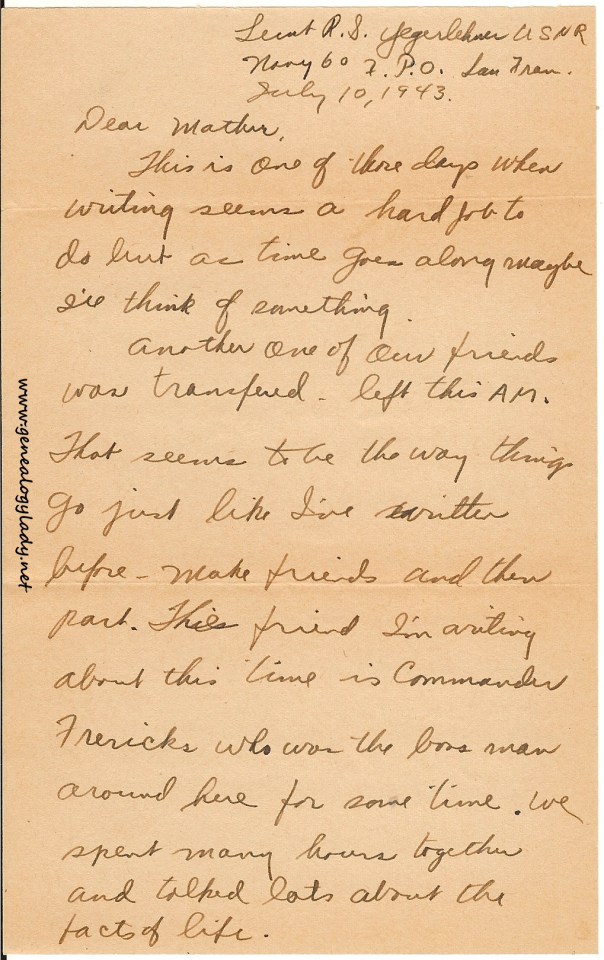 Lieut R. S. Yegerlehner USNR
Navy 60 F.P.O. San Fran.
July 10, 1943.
Dear Mother,
This is one of those days when
writing seems a hard job to
do but as time goes along maybe
I'll think of something.
Another one of our friends
was transfered - left this AM.
That seems to be the way things
go just like I've written
before - make friends and then
part. This friend I'm writing
about this time is Commander
Frericks who was the boss man
around here for some time. We
spent many hours together
and talked lots about the
facts of life.
www.genealogylady.net